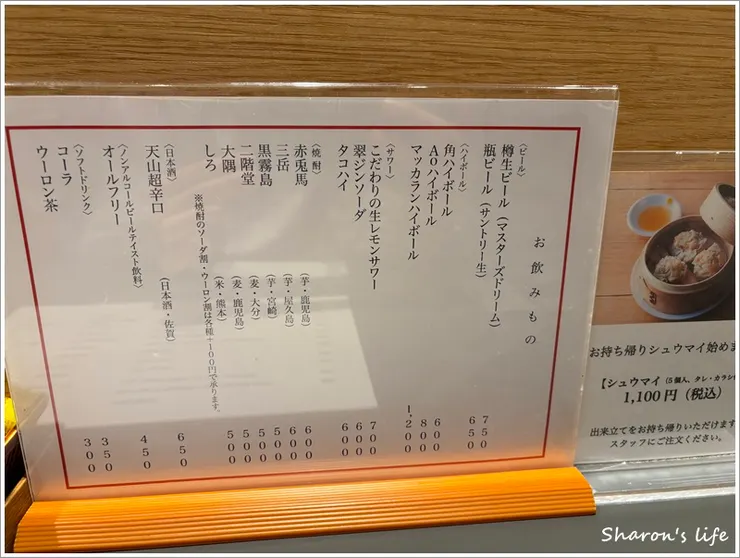 お飲みもの
〈ビール〉
樽生ビール（マスターズドリーム） 750
瓶ビール（サントリー生） 650
〈ハイボール〉
角ハイボール 600
Aoハイボール 800
マッカランハイボール 1,200
〈サワー〉
こだわりの生レモンサワー 700
翠ジンソーダ 600
タコハイ 600
〈焼酎〉
赤兎馬（芋・鹿児島） 600
三岳（芋・屋久島） 600
黒霧島（芋・宮崎） 500
二階堂（麦・大分） 500
大隅（麦・鹿児島） 500
しろ（米・熊本） 500
※焼酎のソーダ割・ウーロン割は各種＋100円で承ります。
〈日本酒〉
天山超辛口（日本酒・佐賀） 650
〈ノンアルコールビールテイスト飲料〉
オールフリー 450
〈ソフトドリンク〉
コーラ 350
ウーロン茶 300
お持ち帰りシュウマイ始めま
【シュウマイ（5個入、タレ・カラシ
1,100円（税込）
出来立てをお持ち帰りいただけます
スタッフにご注文ください。
Sharon's life